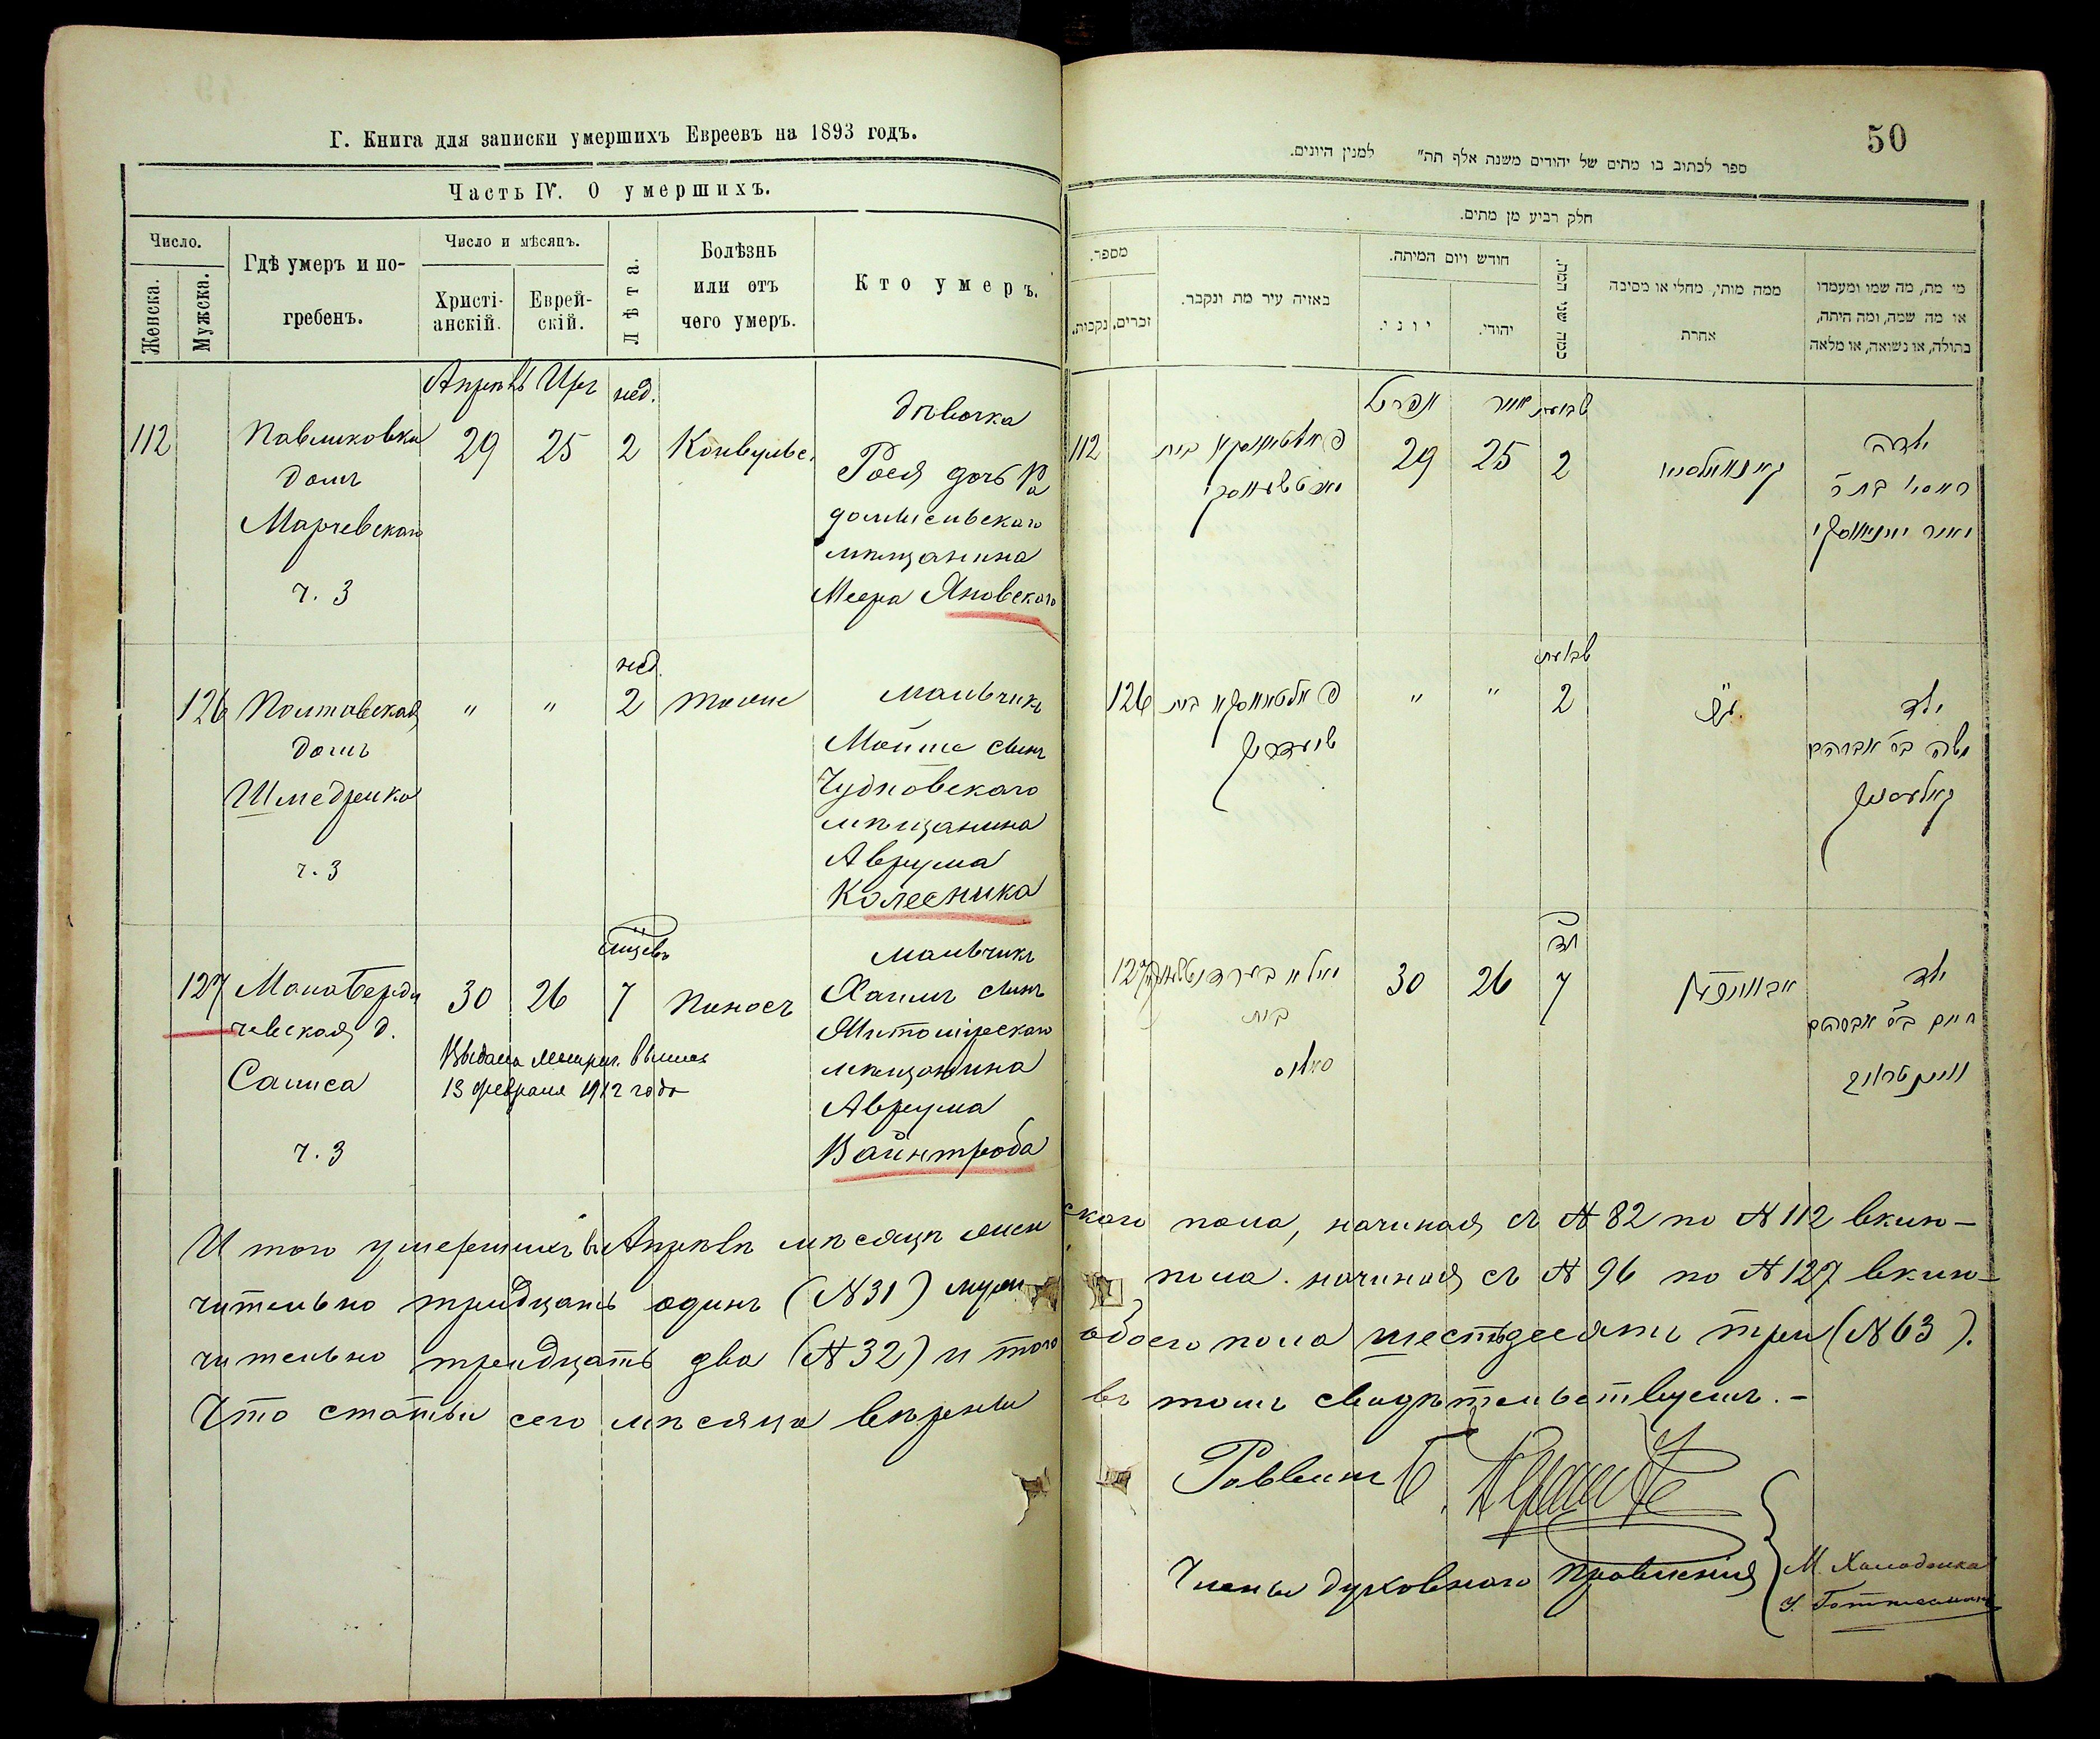 Г. Книга для записки умершихъ Евреевъ на 1893 годъ.
Часть IV. О умершихъ.
Число.
Женска.
Мужска.
Гдѣ умеръ и по-
гребенъ.
Число и мѣсяцъ.
Христі-
анскій.
Еврей-
скій.
Лѣта.
Болѣзнь
или отъ
чего умеръ.
Кто умеръ.
Апрель Иръ нед.
112
Павликовка
домъ
Марчевскаго
ч. 3
29
25
2
Конвульс.
дѣвочка
Рося дочь Ра
домысльскаго
мѣщанина
Меера Яновскаго
126
Полтавская
домъ
Шмедрико
ч. 3
"
"
нед.
2
тоже
мальчикъ
Мойше сынъ
Чудновскаго
мѣщанина
Аврума
Колесника
127
МалоБерди
чевская д.
ч. 3
30
26
7
Поносъ
Выдана Метрич. выпись
13 февраля 1912 года
мальчикъ
Хаимъ сынъ
Житомірскаго
мѣщанина
Аврума
Вайнтроба
Итого умершихъ въ Апрѣлѣ мѣсяцѣ женскаго пола, начиная съ № 82 по № 112 вклю-
чительно тридцать одинъ (№ 31) пола. начиная съ № 96 по № 127 вклю-
чительно тридцать два (№ 32) итого обоего пола шестьдесятъ три (№ 63).
Что статьи сего мѣсяца вѣрны въ томъ свидѣтельствуемъ.-
Раввинъ
Члены духовнаго Правленія
50
ספר לכתוב בו מתים של יהודים משנת אלף תת" למנין היונים.
חלק רביע מן מתים.
מספר.
זכרים.
נקבות.
באיזה עיר מת ונקבר.
חודש ויום המיתה.
יוני.
יהודי.
כמה שני המת.
ממה מותו, מחלי או מסיבה
אחרת
מי מת, מה שמו ומעמדו
או מה שמה, ומה היתה,
בתולה, או נשואה, או מלאה
112
אפריל
אייר
שבועות
29
25
2
ילדה
מאיר יאנאווסקי
126
"
"
שבועות
2
ילד
משה בר אברהם
קאלעסניק
127
בית
30
26
7
ילד
חיים בר אברהם
וויינטרויב